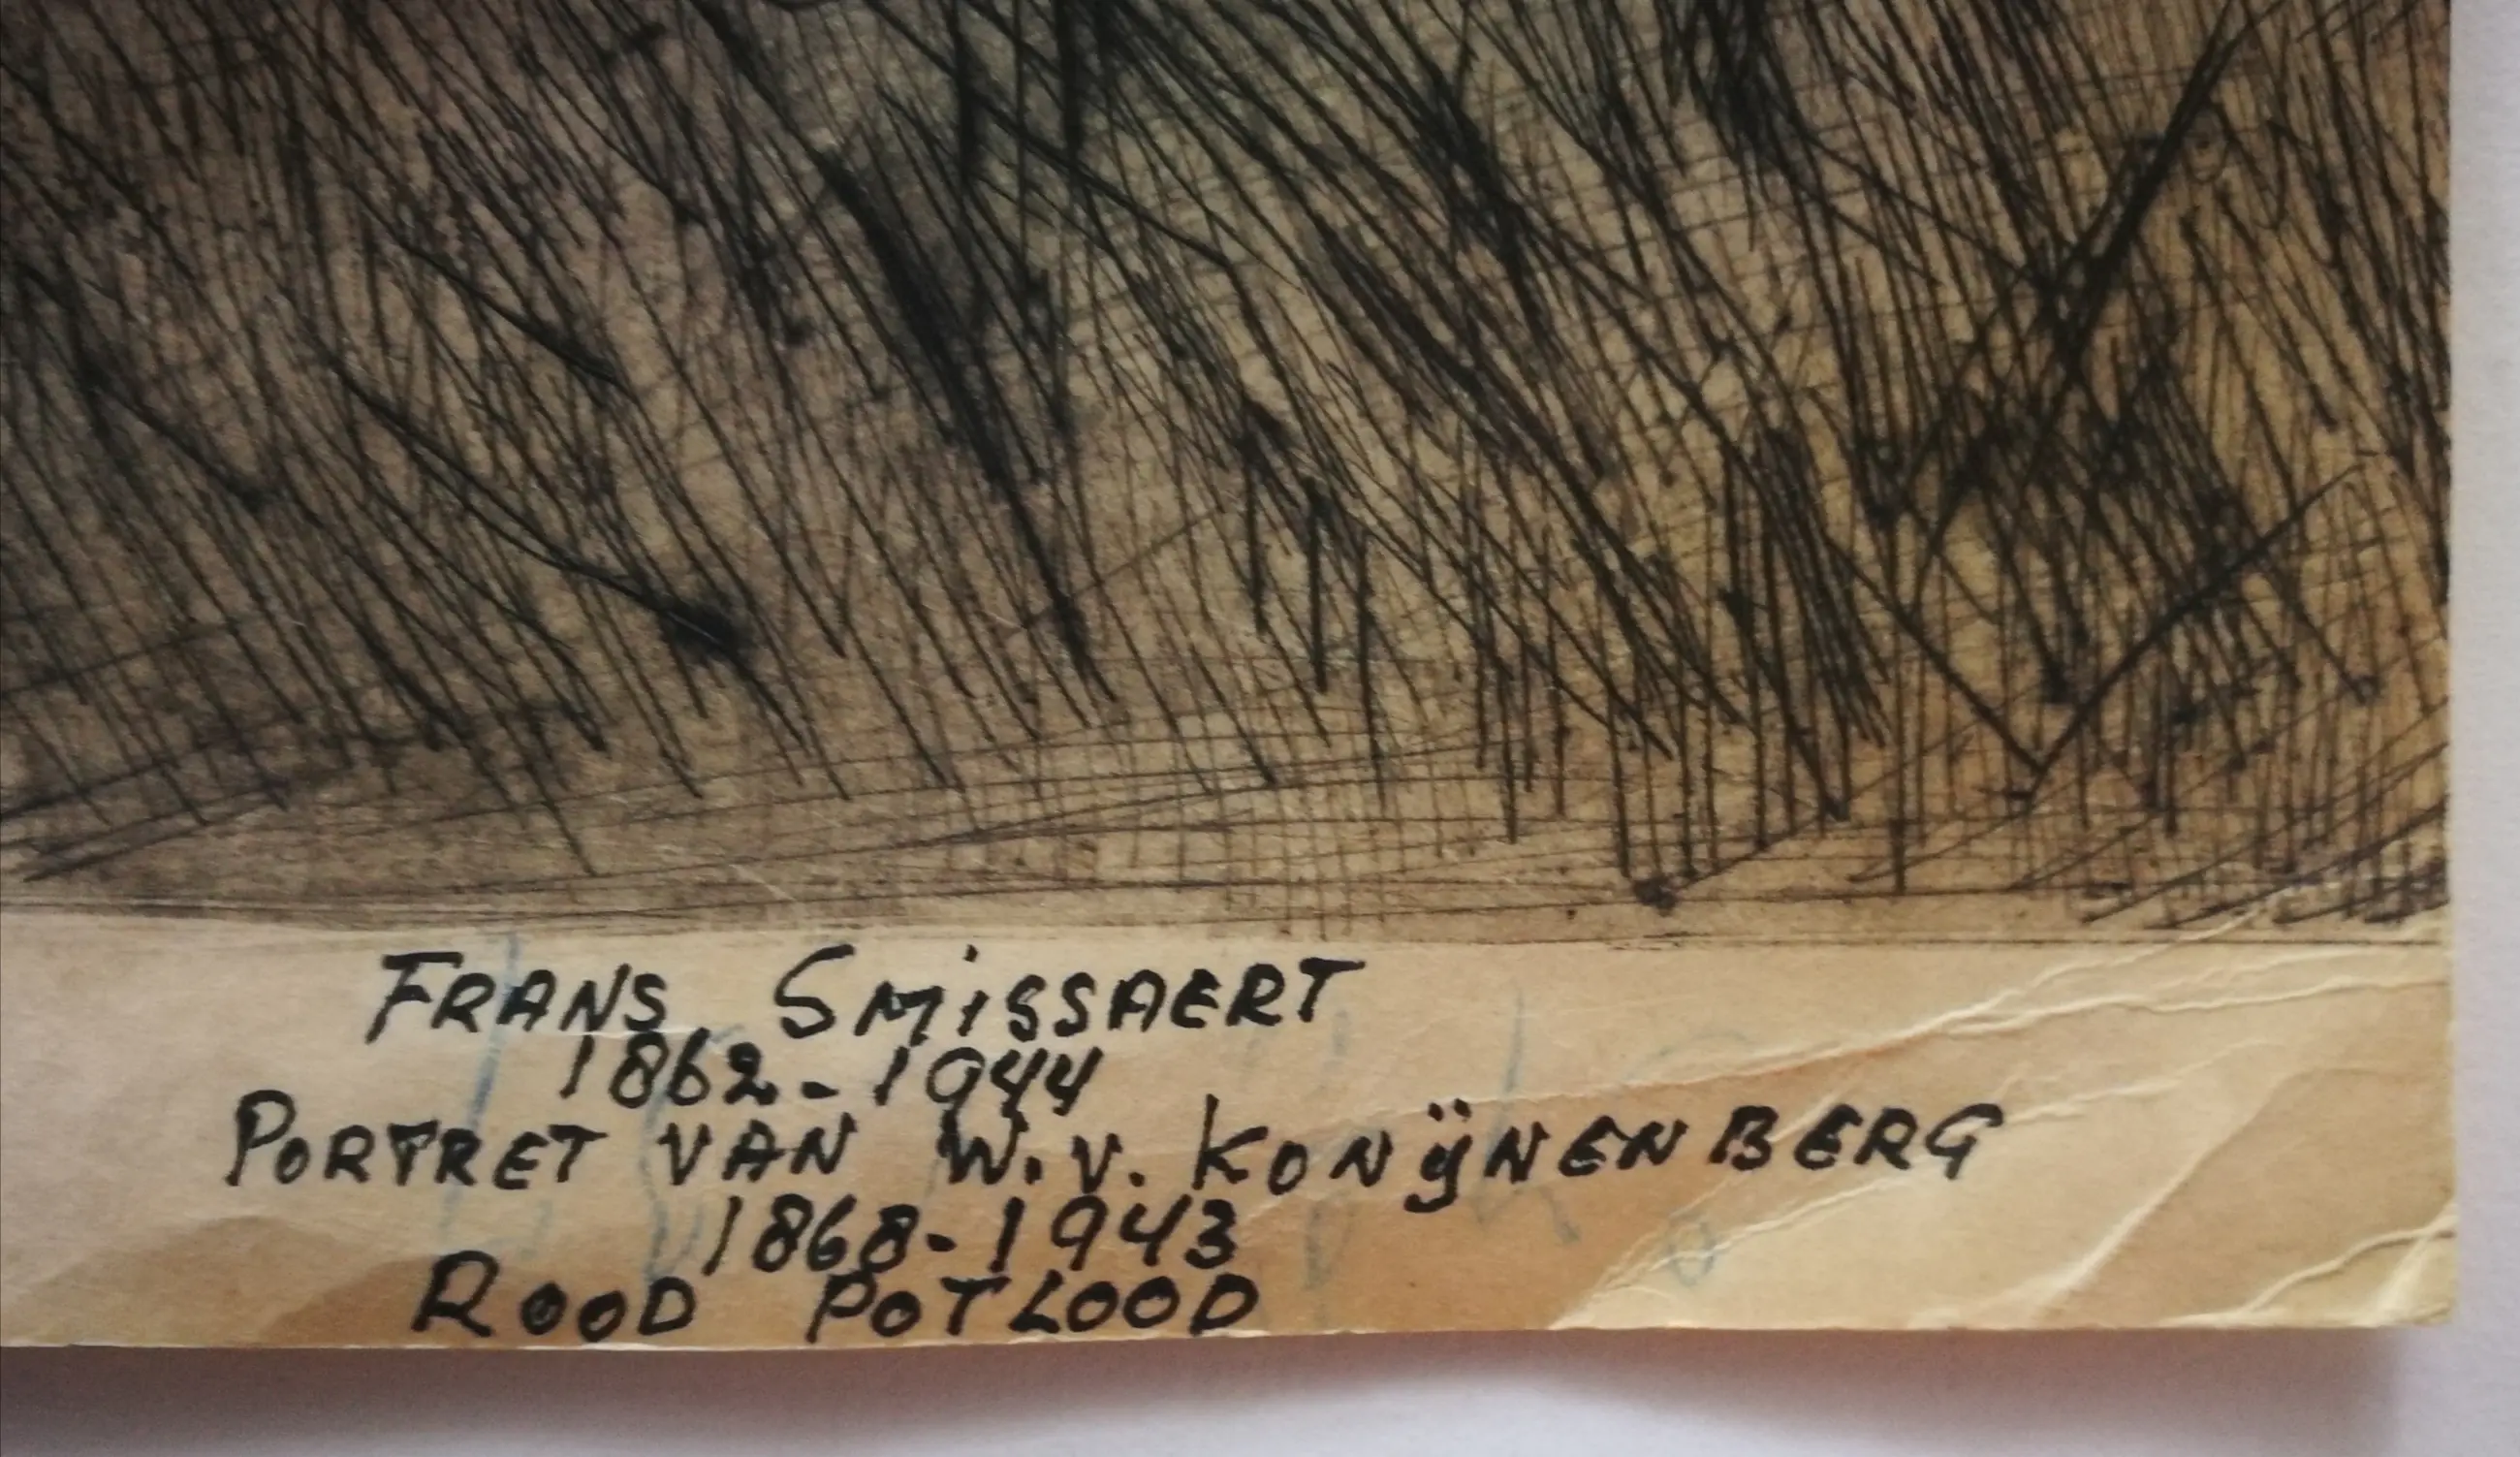 FRANS. SMiSSAERT
1862-1944
PORTRET VAN W.V. KONÿNENBERG
1868-1943
ROOD POTLOOD